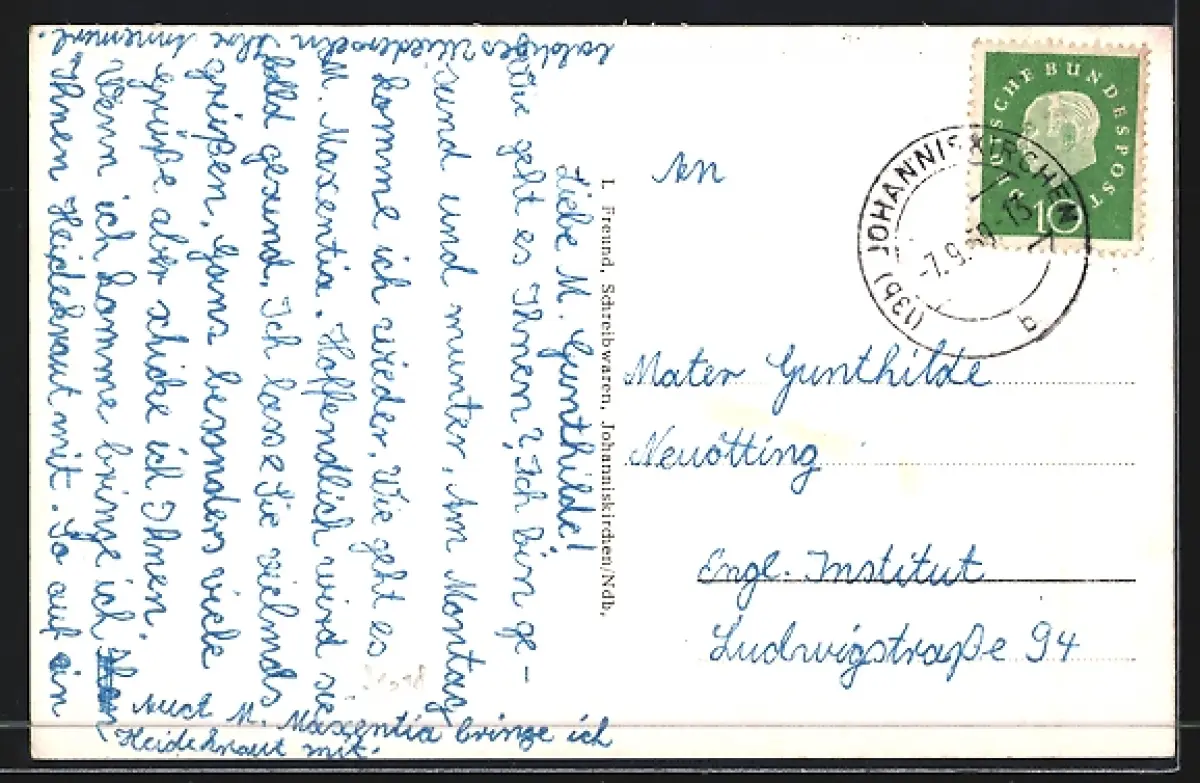 Liebe M. Gunthilde!
Wie geht es Ihnen? Ich bin ge-
sund und munter. Am Montag
komme ich wieder. Wie geht es
M. Maxentia. Hoffendlich wird sie
bald gesund. Ich lasse Sie vielmals
grüßen. Gans bessonders viele
Grüße aber schicke ich Ihnen.
Wenn ich komme bringe ich
Ihnen Heidekraut mit. So auf ein
baldiges Wiedersehn Ihre Annemerl.
Auct M. Maxentia bringe ich
Heidekraut mit.
I. Freund, Schreibwaren, Johanniskirchen/Ndb.
DEUTSCHE BUNDESPOST
10
(13b) JOHANNISKIRCHEN
-7.9. -13
b
An
Mater Gunthilde
Neuötting
Engl. Institut
Ludwigstraße 94